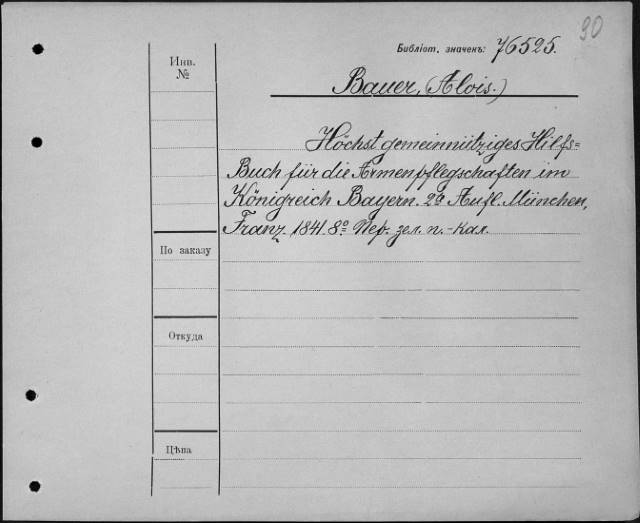 90
Библіот. значекъ: 76525.
Инв.
№
Bauer, (Alois.)
Höchst gemeinnütziges Hilfs=
Buch für die Armenpflegschaften im
Königreich Bayern. 2ª Aufl. München,
Franz. 1841. 8º. Пер. зел. п.-кал.
По заказу
Откуда
Цѣна